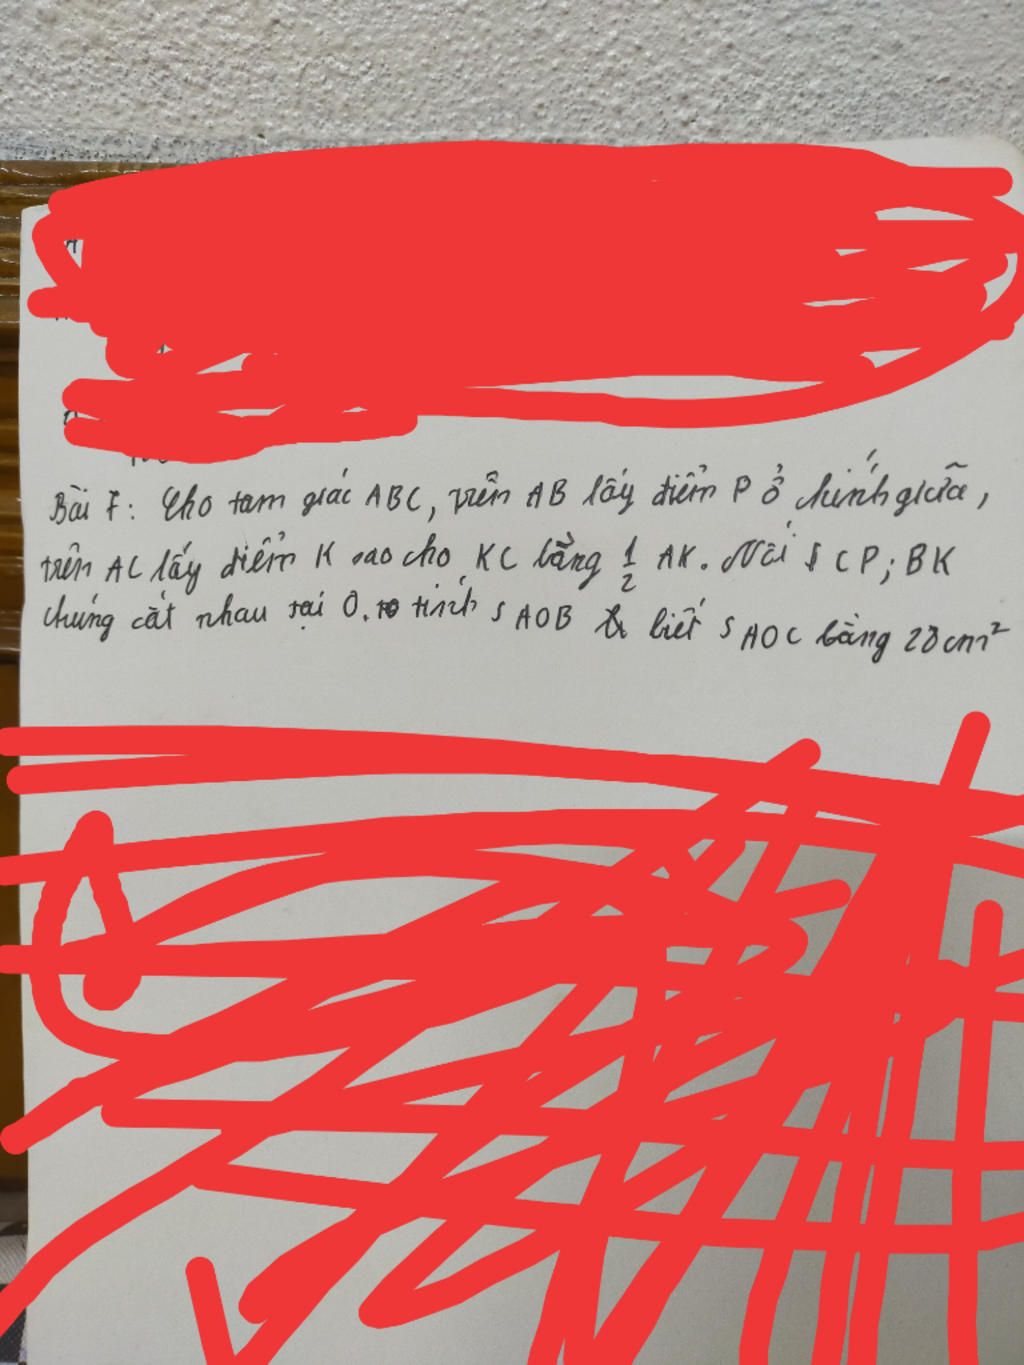 Bài 7: Cho tam giác ABC, trên AB lấy điểm P ở chính giữa,
trên AC lấy điểm K sao cho KC bằng 1/2 AK. Nối CP; BK
chúng cắt nhau tại O. tính S AOB biết S AOC bằng 28cm²